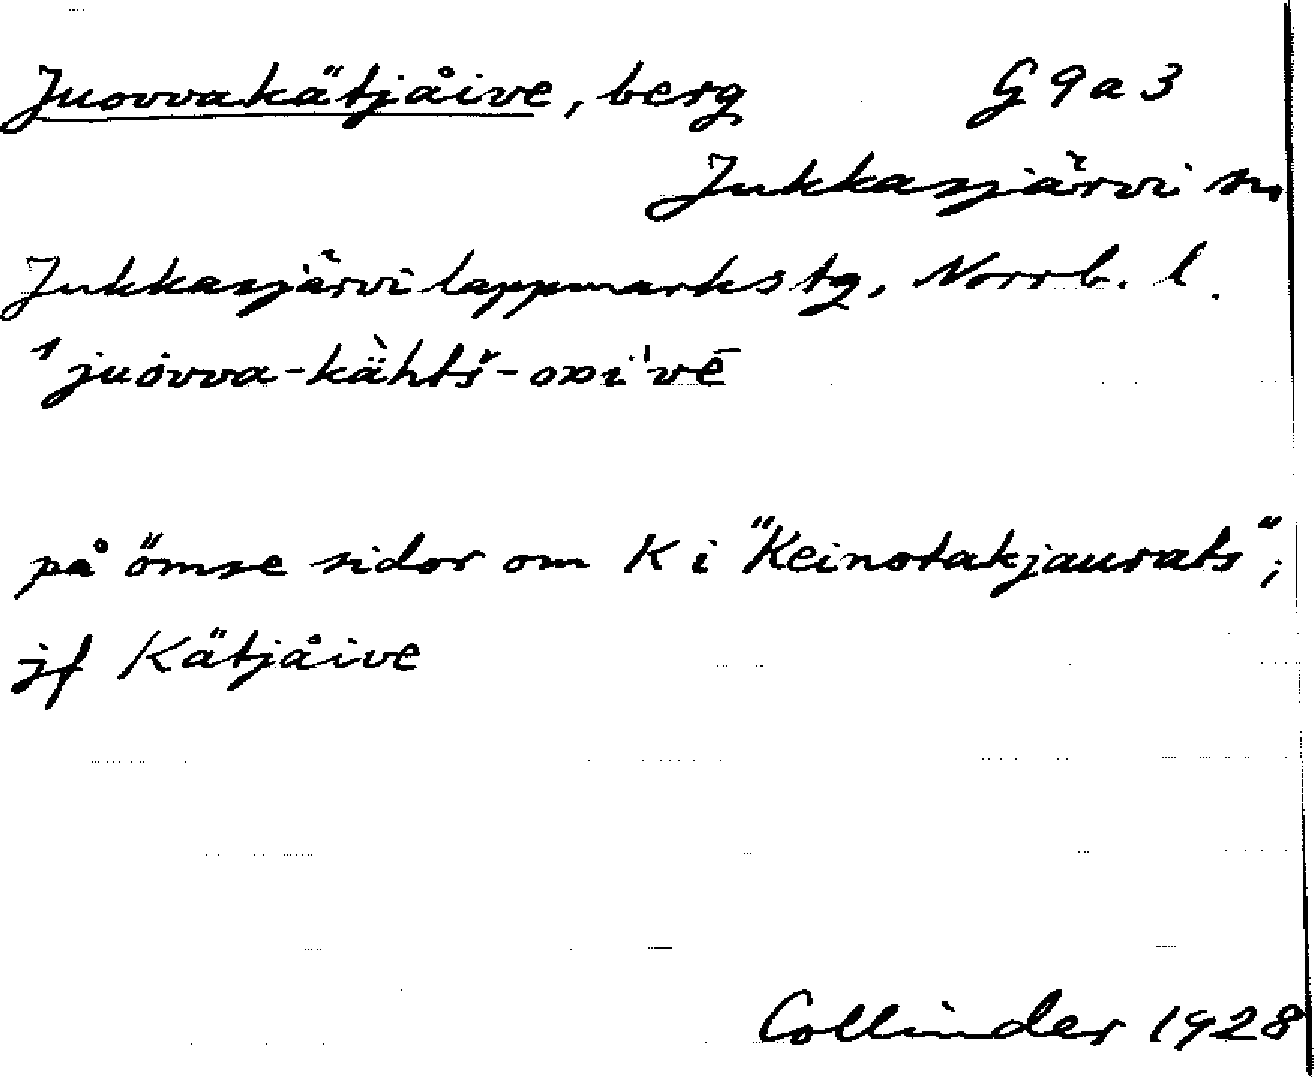 Juovvakätjåive, berg G9a3
Jukkasjärvi sn,
Jukkasjärvi lappmarks tg, Norrb. l.
på ömse sidor om K i "Keinotakjaurats";
jf Kätjåive
Collinder 1928